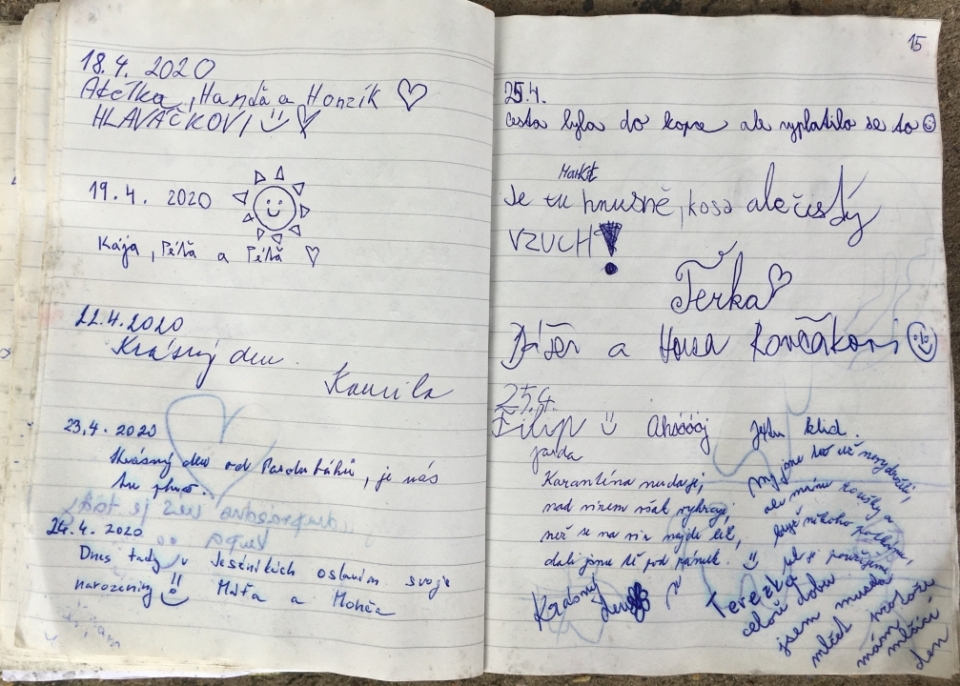 18.4. 2020
Adélka, Handa a Honzík
HLAVÁČKOVI
19.4. 2020
Kája, Péťa a Péťa
22.4.2020
Krásný den.
Kamila
23.4. 2020
Krásný den od Pardubáků, je nás
tu
24.4. 2020
Dnes tady v Jeseníkách oslavím svoje
narozeniny Máťa a
15
25.4.
cesta byla do kopce ale vyplatilo se to
Markét
Je tu hnusně, kosa ale čistý
VZUCH!
Terka
a Honza Kovčákovi
25.4.
Filip Ahóóój Jejku klid.
Karantína nudą je,
nad vírem však vyhraje,
než se na vír najde lék,
dali jsme tě pod pánek.
Krásný den
my jsme tě už nevydrželi,
ale máme roušky a
když někoho potkáme,
tak ji použijeme
Terezka
celou dobu
jsem musela
mlčet protože
mám
mlčící
den